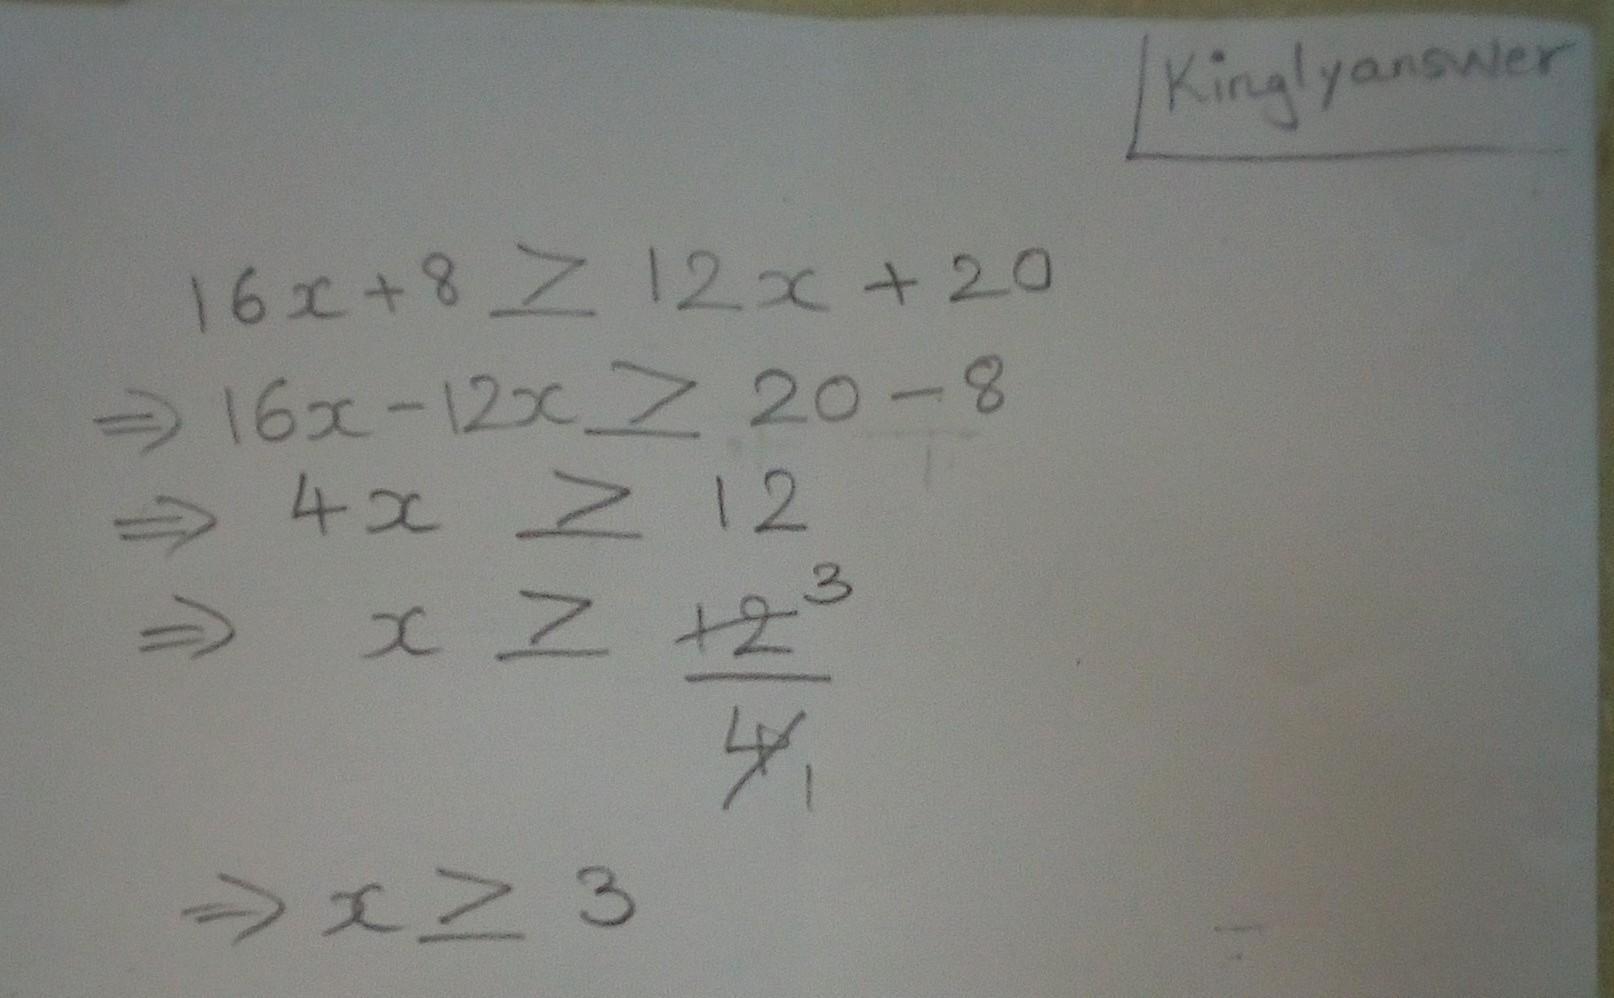 Kinglyanswer
16x+8 ≥ 12x + 20
⇒ 16x-12x ≥ 20 - 8
⇒ 4x ≥ 12
⇒ x ≥ 12 3
4 1
⇒ x ≥ 3